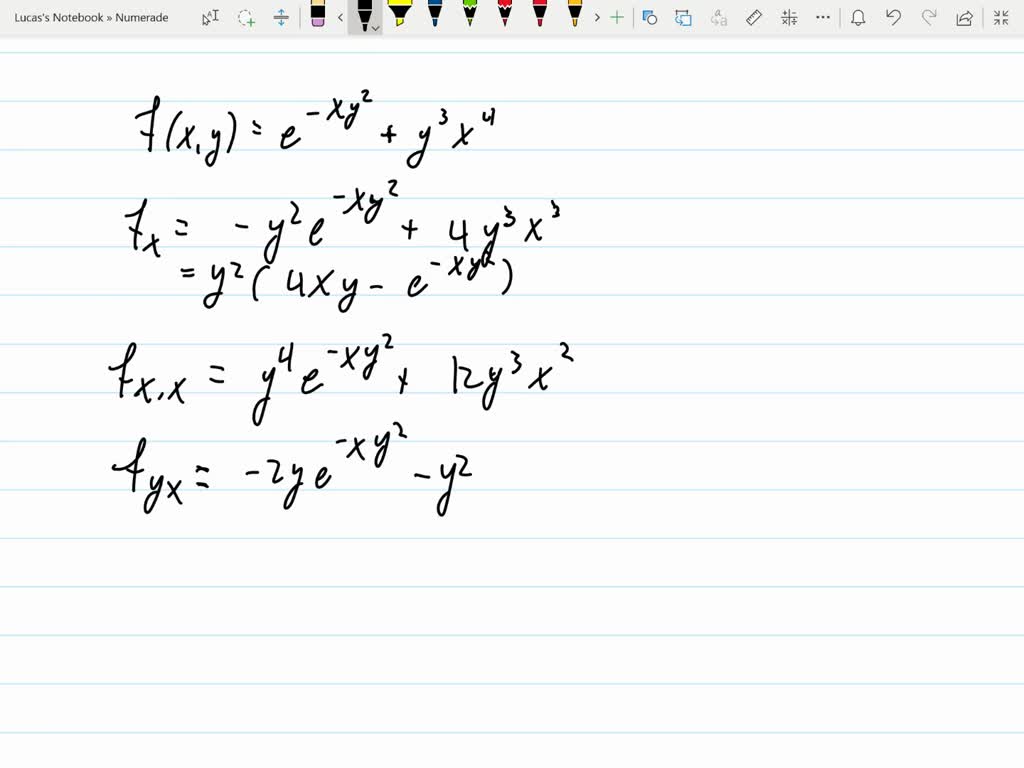 Lucas's Notebook » Numerade
f(x,y) = e^{-xy^2} + y^3x^4
f_x = -y^2e^{-xy^2} + 4y^3x^3
= y^2(4xy - e^{-xy^2})
f_{x,x} = y^4e^{-xy^2} + 12y^3x^2
f_{yx} = -2ye^{-xy^2} - y^2